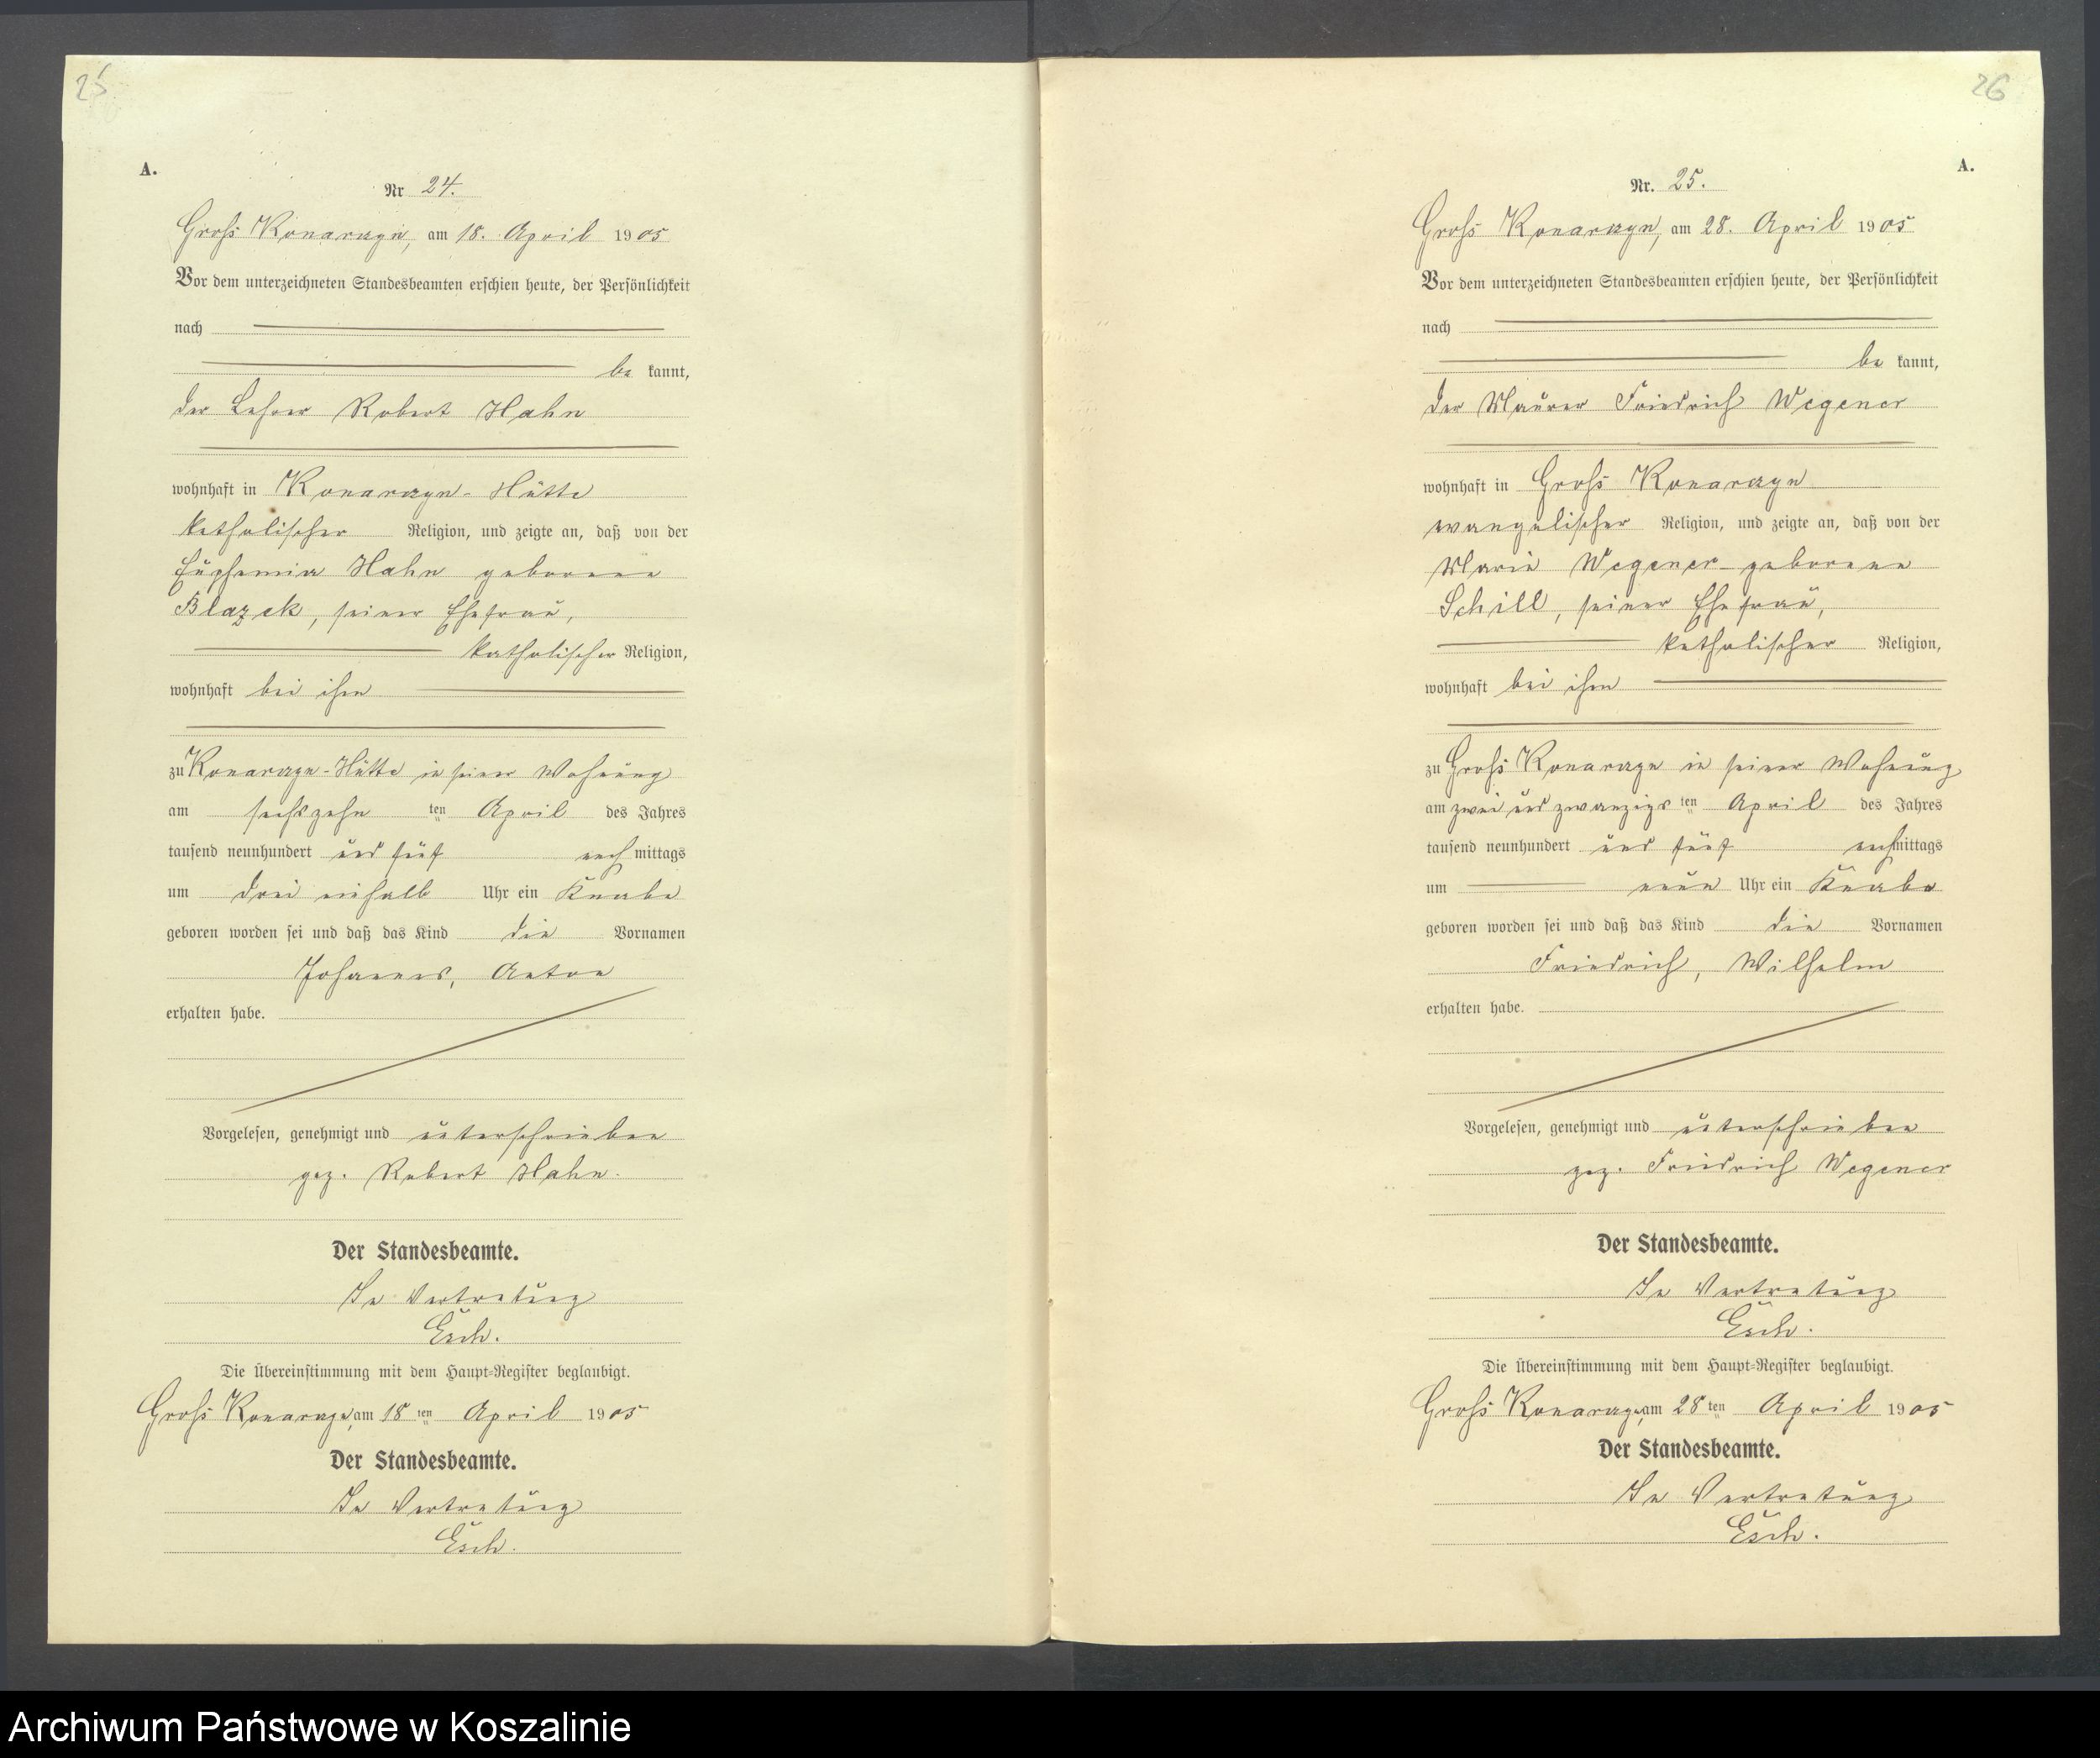 25
A.
Nr 24.
Groß Konarczyn, am 18. April 1905
Vor dem unterzeichneten Standesbeamten erschien heute, der Persönlichkeit
nach
be kannt,
der Lehrer Robert Hahn
wohnhaft in Konarczyn-Hütte
katholischer Religion, und zeigte an, daß von der
Euphemia Hahn geborene
Blazek, seiner Ehefrau,
katholischer Religion,
wohnhaft bei ihm
zu Konarczyn-Hütte in seiner Wohnung
am sechszehn ten April des Jahres
tausend neunhundert und fünf nach mittags
um drei einhalb Uhr ein Knabe
geboren worden sei und daß das Kind die Vornamen
Johannes, Anton
erhalten habe.
Vorgelesen, genehmigt und unterschrieben
gez. Robert Hahn.
Der Standesbeamte.
In Vertretung
Esch.
Die Übereinstimmung mit dem Haupt-Register beglaubigt.
Groß Konarczyn, am 18 ten April 1905
Der Standesbeamte.
In Vertretung
Esch.
26
A.
Nr. 25.
Groß Konarczyn, am 28. April 1905
Vor dem unterzeichneten Standesbeamten erschien heute, der Persönlichkeit
nach
be kannt,
der Maurer Friedrich Wegener
wohnhaft in Groß Konarczyn
evangelischer Religion, und zeigte an, daß von der
Marie Wegener geborene
Schill, seiner Ehefrau,
katholischer Religion,
wohnhaft bei ihm
zu Groß Konarczyn in seiner Wohnung
am zwei und zwanzigs ten April des Jahres
tausend neunhundert und fünf nachmittags
um neun Uhr ein Knabe
geboren worden sei und daß das Kind die Vornamen
Friedrich, Wilhelm
erhalten habe.
Vorgelesen, genehmigt und unterschrieben
gez. Friedrich Wegener
Der Standesbeamte.
In Vertretung
Esch.
Die Übereinstimmung mit dem Haupt-Register beglaubigt.
Groß Konarczyn, am 28 ten April 1905
Der Standesbeamte.
In Vertretung
Esch.
Archiwum Państwowe w Koszalinie